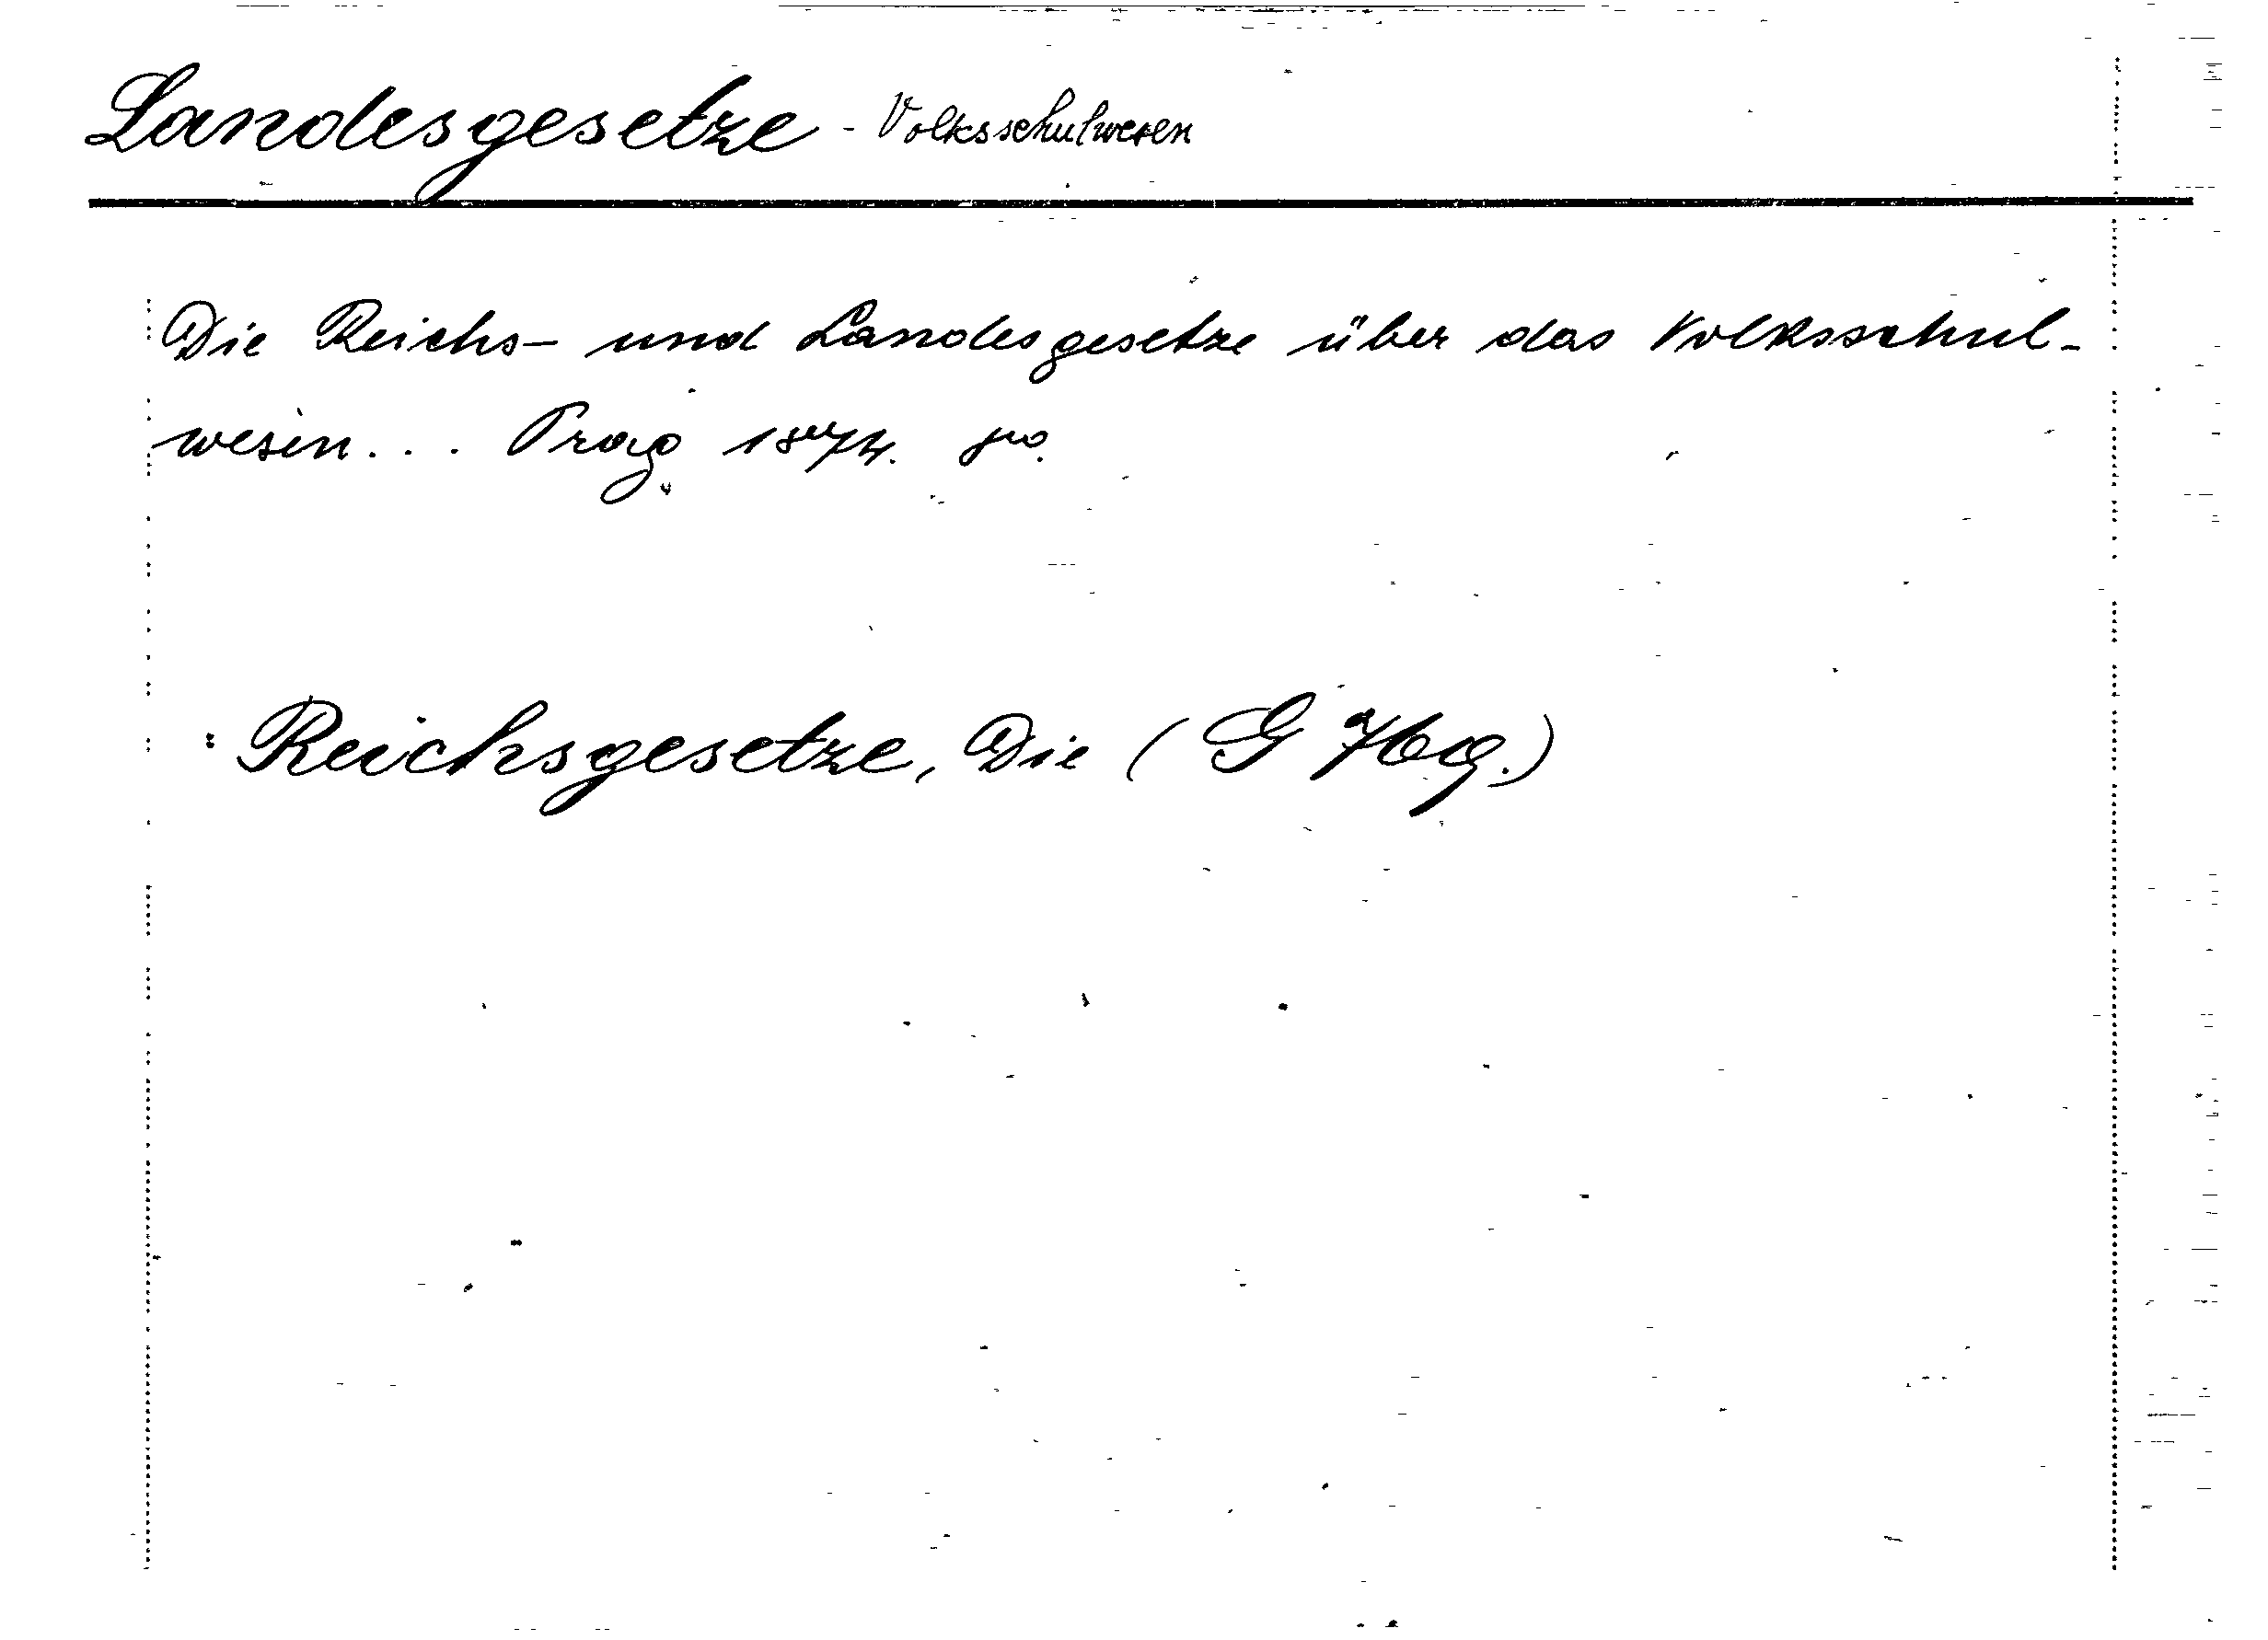 Landesgesetze - Volksschulwesen
Die Reichs- und Landesgesetze über das Volksschul-
wesen... Prag 1874. 8o.
: Reichsgesetze, Die (G 769.)